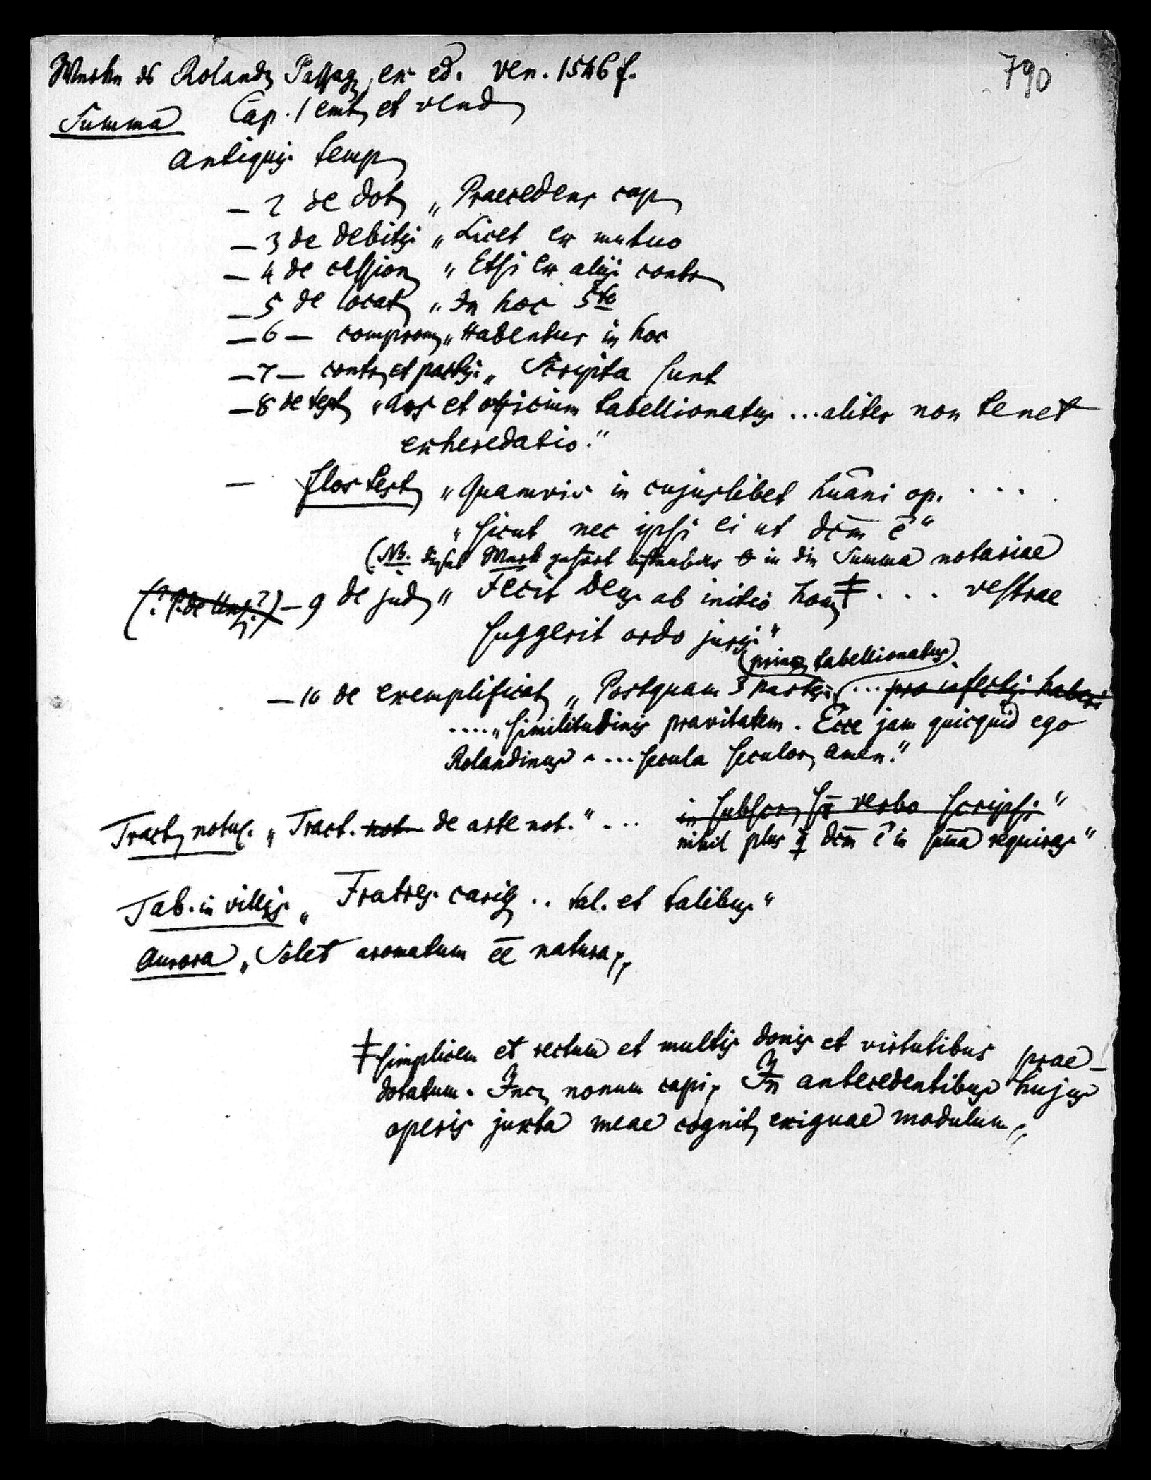 790
Werke ds Roland Passag ex ed. Ven. 1546 f.
Summa Cap. 1 emt et vend
antiquis temp
— 2 de dot „ Praecedens cap
— 3 de debitis „ Licet ex mutuo
— 4 de cession „ Etsi ex aliis contr
— 5 de locat „ In hoc 5to
— 6 — comprom „ Habentur in hoc
— 7 — contr et pactis „ Scripta sunt
— 8 de test „ Ars et officium tabellionatus ... aliter non tenet
exheredatio."
— flos test „ Quamvis in cujuslibet huani op. . . .
„ sicut nec ipsi ei ut dcm e"
(NB. Werk gehört in die Summa notariae
(? P. de Unz ?) — 9 de jud „ Fecit Deus ab initio hom ‡ . . . vestrae
suggerit ordo juris"
(prius tabellionatus)
— 10 de exemplificat „ Postquam 3 partis (... pro infectis haberi
.... „ similitudinis pravitatem . Ecce jam quicquid ego
Rolandinus - ... secula seculor amen."
in subscr sa verbo scripsi"
Tract notul. „ Tract. not de arte not." ... nihil plus q dcm e in suma requiras"
Tab. in villis „ Fratres caris .. tal. et talibus"
Aurora „ Solet aromatum ee natura „
‡ simplicem et rectum et multis donis et virtutibus prae-
dotatum. Inc nonum capi, In antecedentibus hujus
operis juxta meae cognit exiguae modulum „